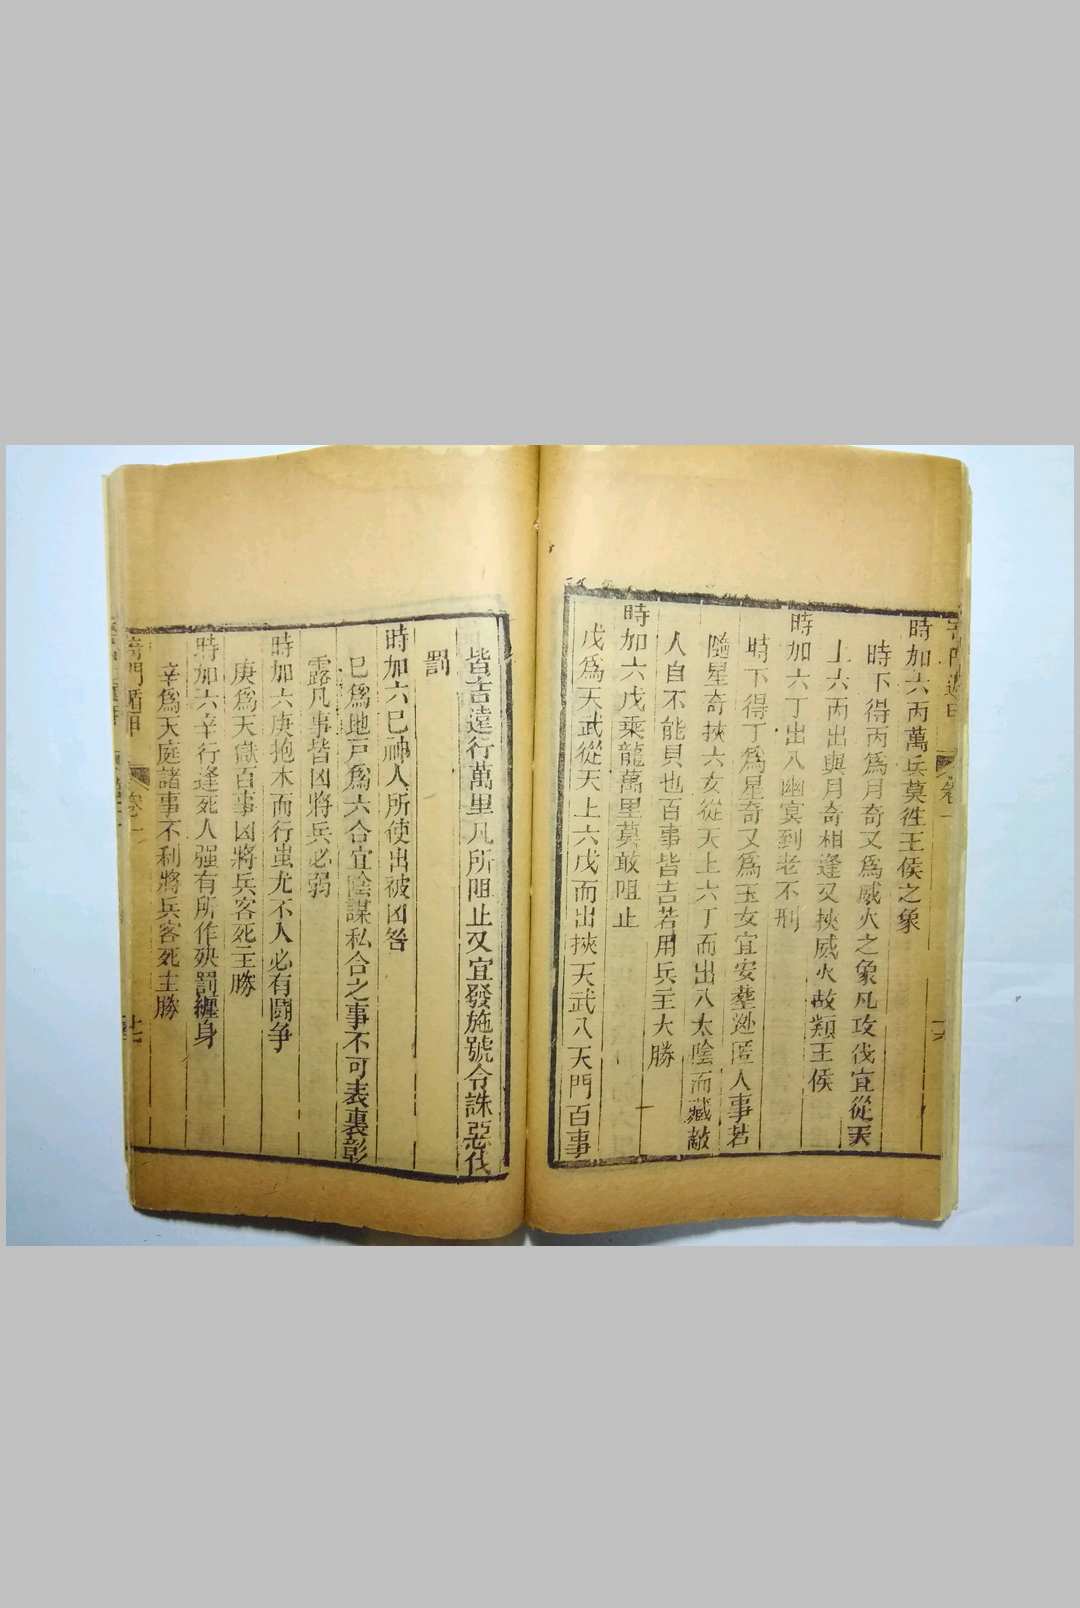 時加六丙萬兵莫徃王侯之象
時下得丙爲月奇又爲威火之象凡攻伐宜從天
上六丙出與月奇相逢又挾威火故類王侯
時加六丁出入幽冥到老不刑
時下得丁爲星奇又爲玉女宜安塟逊匿人事若
隨星奇挾六女從天上六丁而出入太陰而藏敵
人自不能見也百事皆吉若用兵主大勝
時加六戊乘龍萬里莫敢阻止
戊爲天武從天上六戊而出挾天武入天門百事
皆吉遠行萬里凡所阻止又宜發施號令誅惡伐
罰
時加六巳神人所使出被凶咎
巳爲地戸爲六合宜陰謀私合之事不可表裏彰
露凡事皆凶將兵必弱
時加六庚抱木而行蚩尤不入必有鬪争
庚爲天獄百事凶將兵客死主勝
時加六辛行逢死人强有所作殃罰纒身
辛爲天庭諸事不利將兵客死主勝
奇門遁甲
卷一
十七